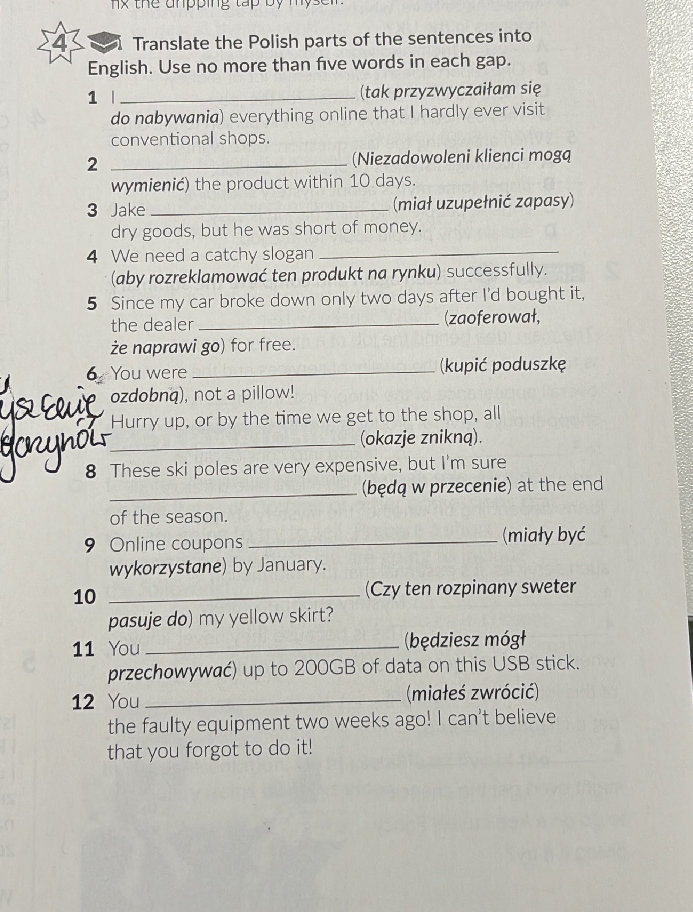 fix the dripping tap by myself.
4 Translate the Polish parts of the sentences into
English. Use no more than five words in each gap.
1 I ____________ (tak przyzwyczaiłam się
do nabywania) everything online that I hardly ever visit
conventional shops.
2 ____________ (Niezadowoleni klienci mogą
wymienić) the product within 10 days.
3 Jake ____________ (miał uzupełnić zapasy)
dry goods, but he was short of money.
4 We need a catchy slogan ____________
(aby rozreklamować ten produkt na rynku) successfully.
5 Since my car broke down only two days after I'd bought it,
the dealer ____________ (zaoferował,
że naprawi go) for free.
6 You were ____________ (kupić poduszkę
ozdobną), not a pillow!
Hurry up, or by the time we get to the shop, all
____________ (okazje znikną).
8 These ski poles are very expensive, but I'm sure
____________ (będą w przecenie) at the end
of the season.
9 Online coupons ____________ (miały być
wykorzystane) by January.
10 ____________ (Czy ten rozpinany sweter
pasuje do) my yellow skirt?
11 You ____________ (będziesz mógł
przechowywać) up to 200GB of data on this USB stick.
12 You ____________ (miałeś zwrócić)
the faulty equipment two weeks ago! I can't believe
that you forgot to do it!